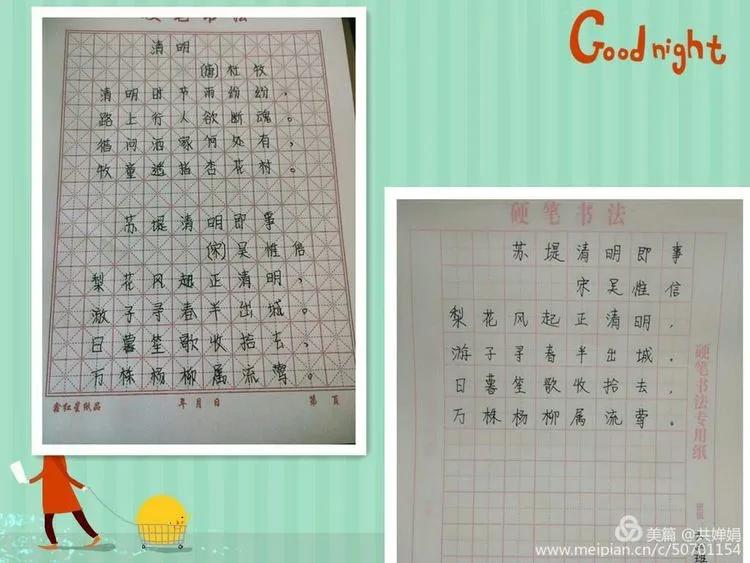 硬笔书法
清明
(唐)杜牧
清明时节雨纷纷,
路上行人欲断魂。
借问酒家何处有,
牧童遥指杏花村。
苏堤清明即事
(宋)吴惟信
梨花风起正清明,
游子寻春半出城。
日暮笙歌收拾去,
万株杨柳属流莺。
鑫红星纸品 年月日 第 页
Good night
硬笔书法
苏堤清明即事
宋吴惟信
梨花风起正清明,
游子寻春半出城。
日暮笙歌收拾去,
万株杨柳属流莺。
硬笔书法专用纸
美篇 @共婵娟
www.meipian.cn/c/50701154